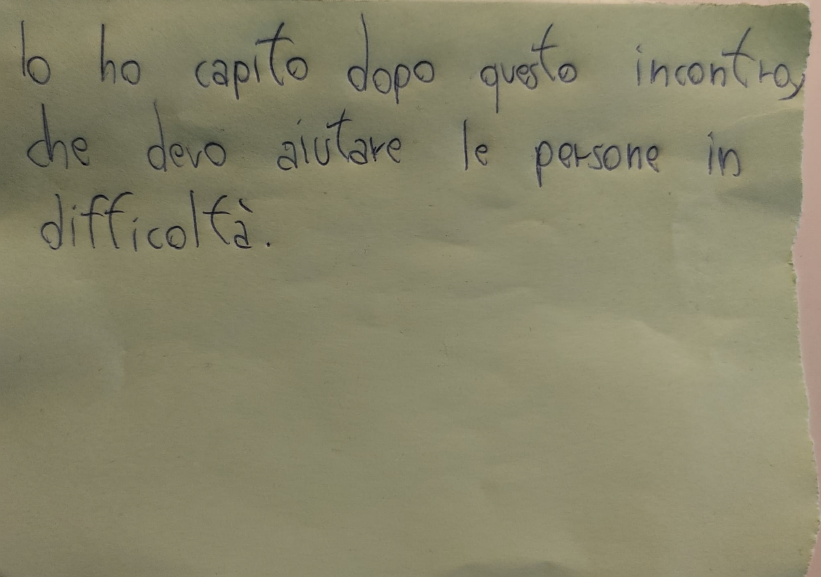 Io ho capito dopo questo incontro,
che devo aiutare le persone in
difficoltà.